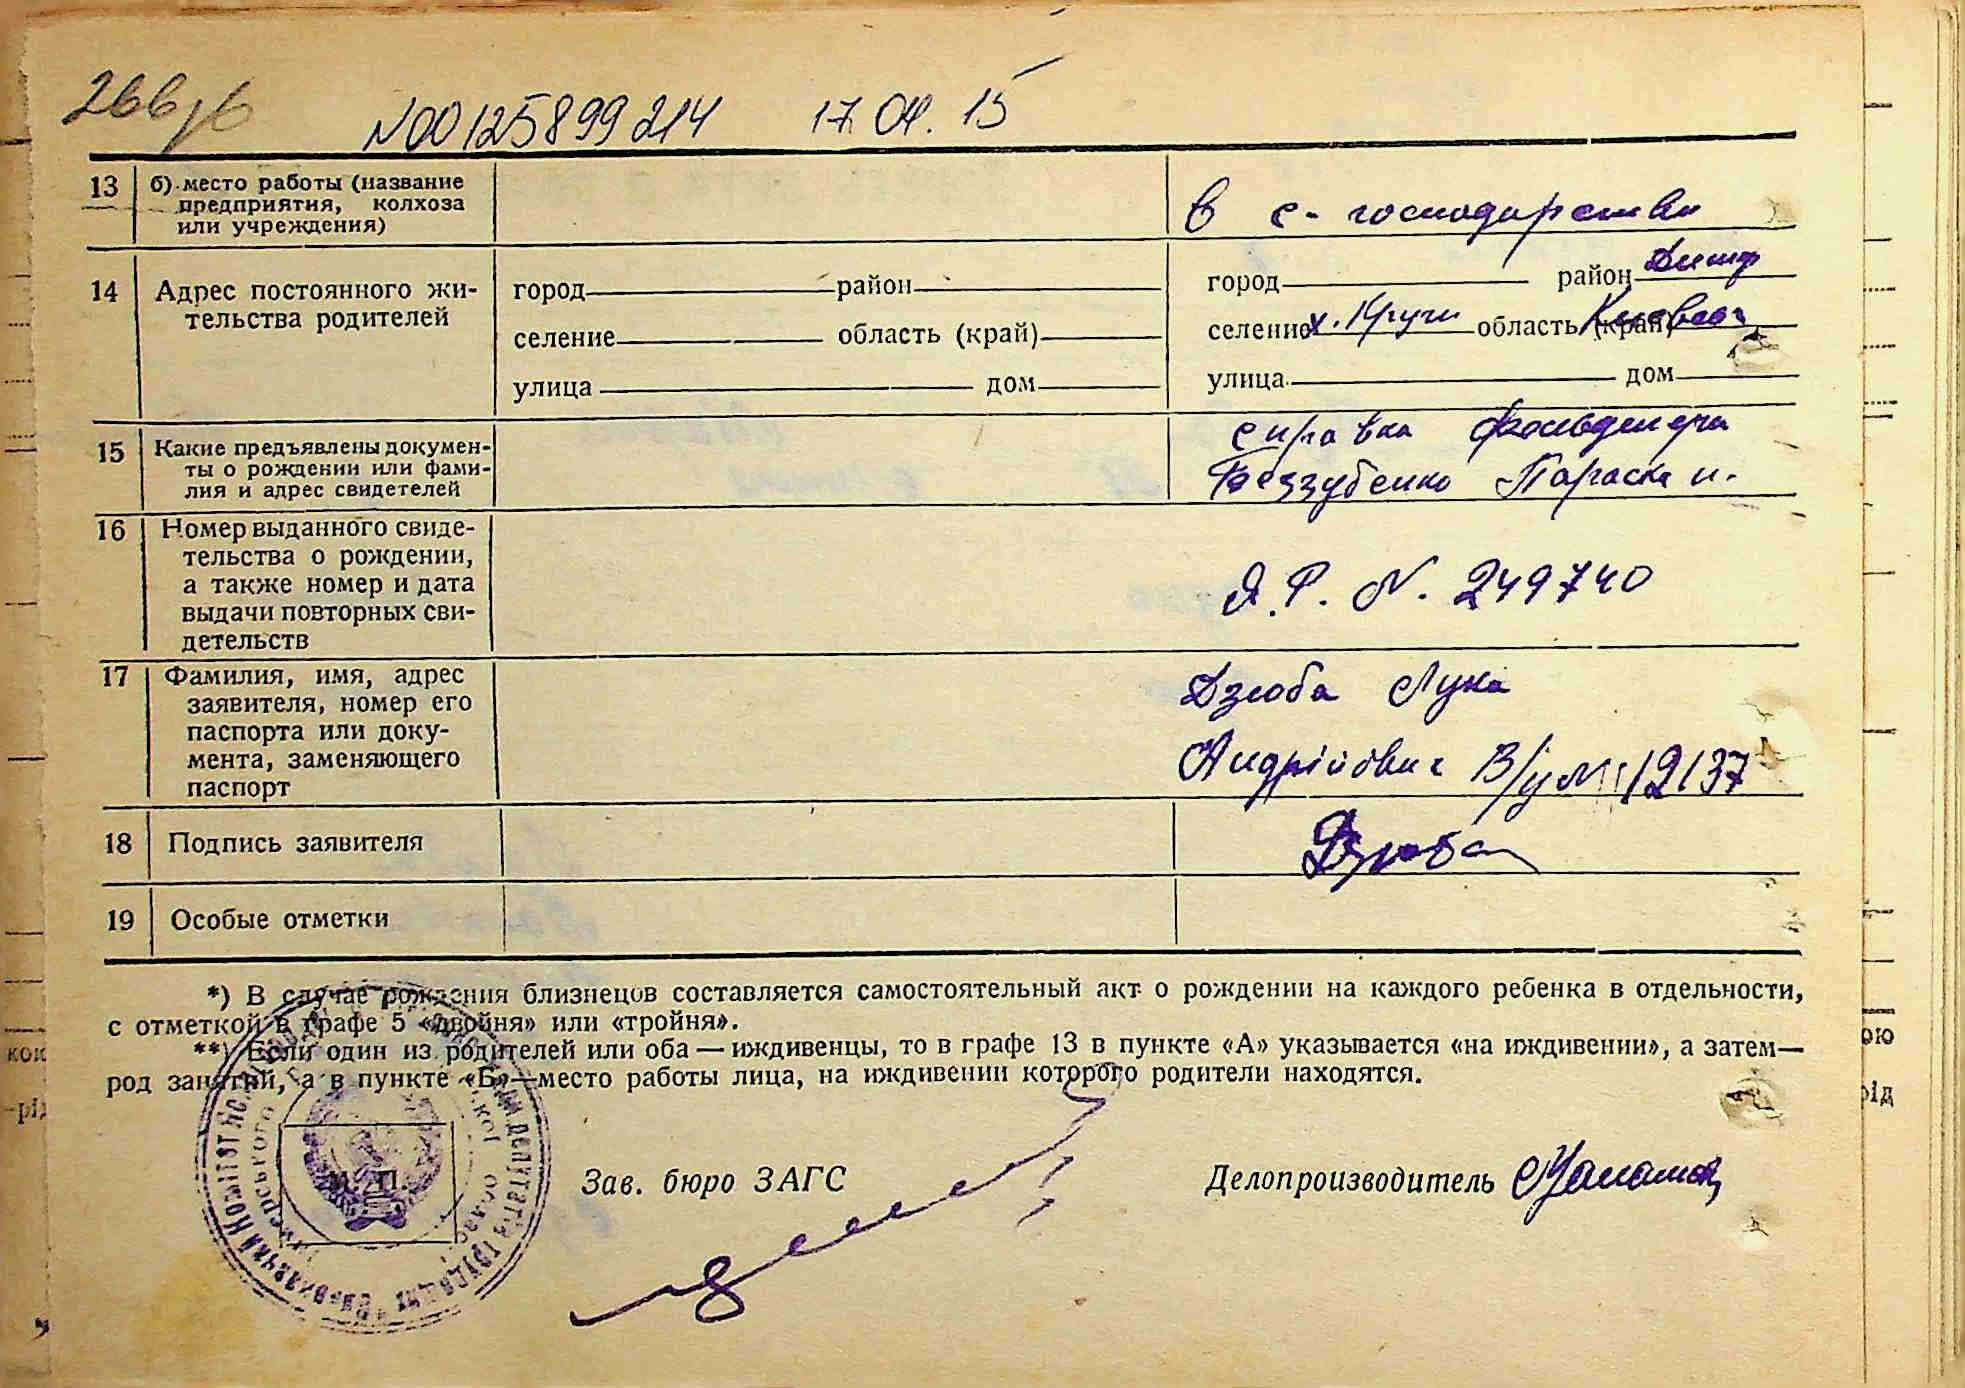 266
N00125899214 17.04.15
13 б) место работы (название
предприятия, колхоза
или учреждения)
в с-господарстві
14 Адрес постоянного жи-
тельства родителей
город район
селение область (край)
улица дом
город район Димер
селение х. Кручи область (край) Київськ
улица дом
15 Какие предъявлены докумен-
ты о рождении или фами-
лия и адрес свидетелей
справка
Беззубенко Параска и.
16 Номер выданного свиде-
тельства о рождении,
а также номер и дата
выдачи повторных сви-
детельств
Я.Р. N. 249740
17 Фамилия, имя, адрес
заявителя, номер его
паспорта или доку-
мента, заменяющего
паспорт
Дзюба Лука
Андрійович 12137
18 Подпись заявителя
Дзюба
19 Особые отметки
*) В случае рождения близнецов составляется самостоятельный акт о рождении на каждого ребенка в отдельности,
с отметкой в графе 5 «двойня» или «тройня».
**) Если один из родителей или оба — иждивенцы, то в графе 13 в пункте «А» указывается «на иждивении», а затем—
род занятий, а в пункте «Б»—место работы лица, на иждивении которого родители находятся.
М. П.
Зав. бюро ЗАГС
Делопроизводитель